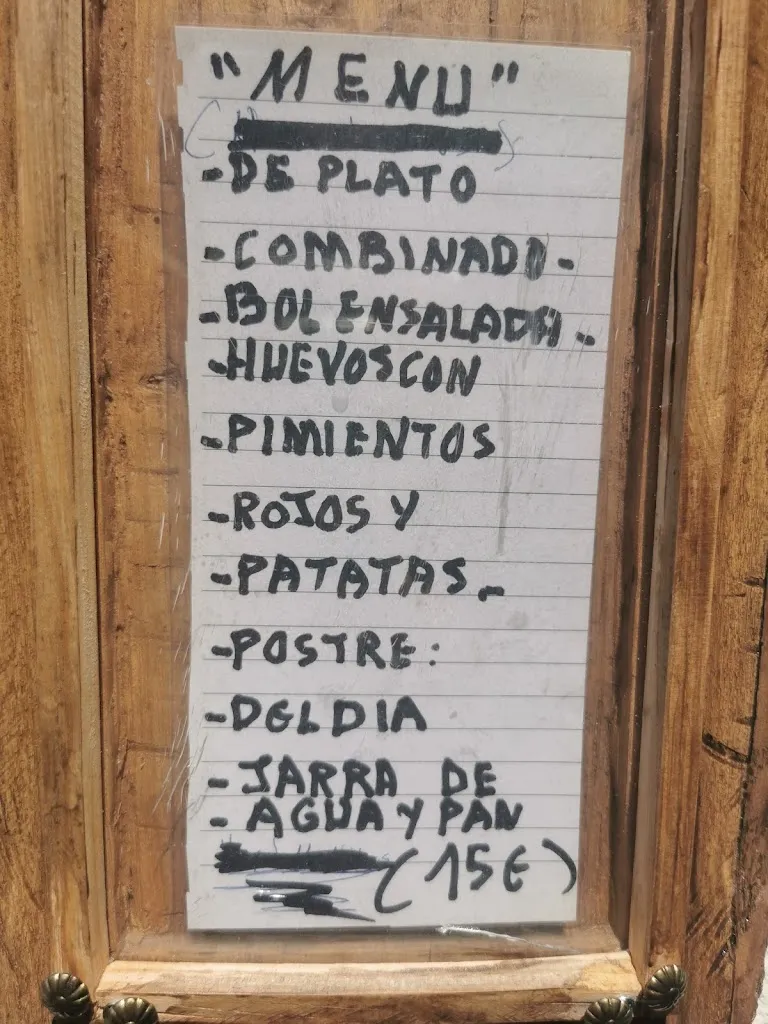 "MENU"
-DE PLATO
-COMBINADO-
-BOL ENSALADA-
-HUEVOS CON
-PIMIENTOS
-ROJOS Y
-PATATAS-
-POSTRE:
-DEL DIA
-JARRA DE
-AGUA Y PAN
(15€)